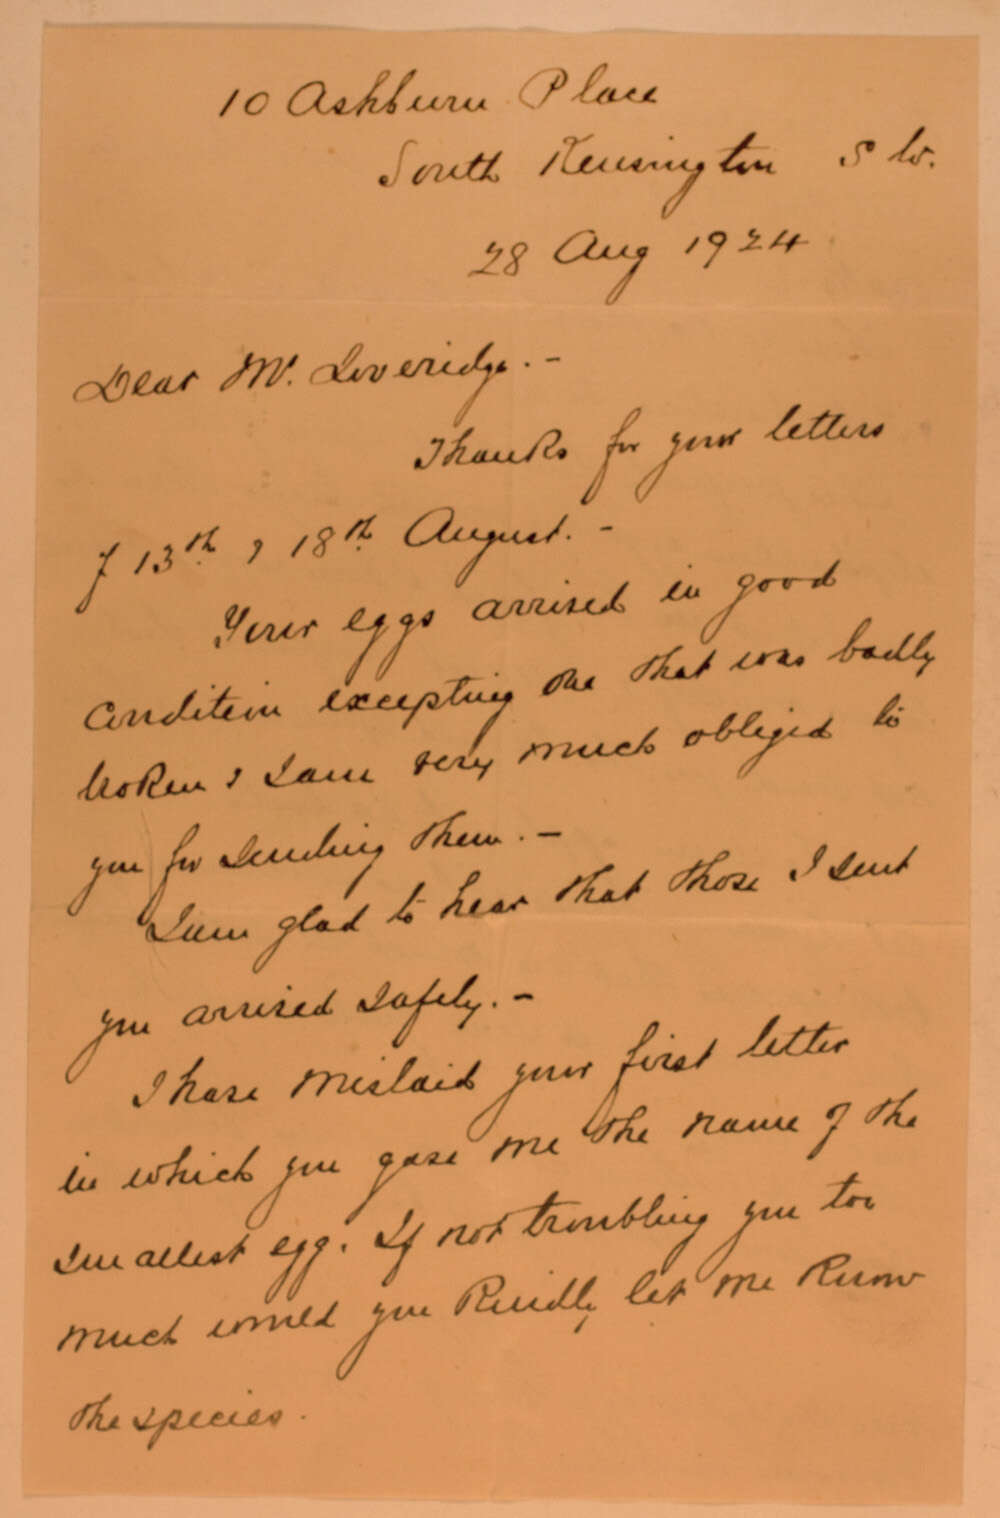 10 Ashburn Place
South Kensington S W.
28 Aug 1924
Dear Mr. Loveridge. -
Thanks for your letters
of 13th. & 18th. August. -
Your eggs arrived in good
condition excepting one that was badly
broken & I am very much obliged to
you for sending them. -
I am glad to hear that those I sent
you arrived safely. -
I have mislaid your first letter
in which you gave me the name of the
smallest egg. If not troubling you too
much would you kindly let me know
the species.